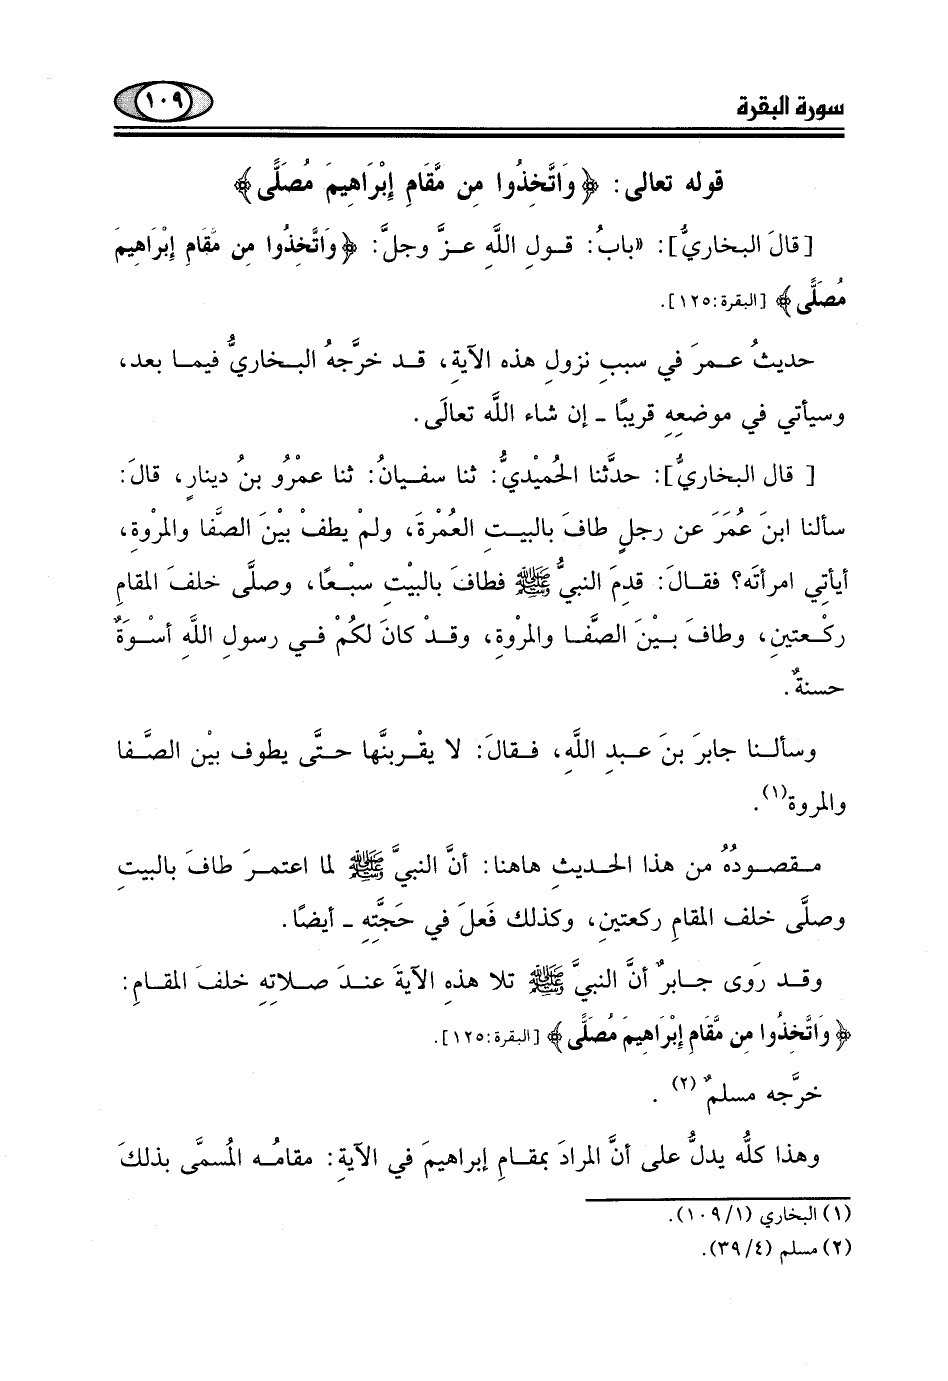 سورة البقرة ١٠٩
قوله تعالى: ﴿وَاتَّخِذُوا مِن مَّقَامِ إِبْرَاهِيمَ مُصَلًّى﴾
[قالَ البخاريُّ]: «بابُ: قولِ اللَّهِ عزَّ وجلَّ: ﴿وَاتَّخِذُوا مِن مَّقَامِ إِبْرَاهِيمَ
مُصَلًّى﴾ [البقرة:١٢٥].
حديثُ عمرَ في سببِ نزولِ هذه الآيةِ، قد خرَّجهُ البخاريُّ فيما بعد،
وسيأتي في موضعِهِ قريبًا ـ إن شاء اللَّه تعالَى.
[ قال البخاريُّ]: حدَّثنا الحُميْديُّ: ثنا سفيانُ: ثنا عمْرُو بنُ دينارٍ، قالَ:
سألنا ابنَ عُمَرَ عن رجلٍ طافَ بالبيتِ العُمْرةَ، ولمْ يطفْ بيْنَ الصَّفا والمرْوةِ،
أيأتِي امرأتَه؟ فقالَ: قدمَ النبيُّ ﷺ فطافَ بالبيْتِ سبْعًا، وصلَّى خلفَ المقامِ
ركْعتينِ، وطافَ بيْنَ الصَّفا والمرْوةِ، وقدْ كانَ لكُمْ في رسولِ اللَّهِ أسْوَةٌ
حسنةٌ.
وسألنا جابرَ بنَ عبدِ اللَّهِ، فقالَ: لا يقْربنَّها حتَّى يطوف بيْن الصَّفا
والمروة(١).
مقصودُهُ من هذا الحديثِ هاهنا: أنَّ النبيَّ ﷺ لما اعتمرَ طافَ بالبيتِ
وصلَّى خلف المقامِ ركعتينِ، وكذلك فَعلَ في حَجَّتِهِ ـ أيضًا.
وقد رَوى جابرٌ أنَّ النبيَّ ﷺ تلا هذهِ الآيةَ عندَ صلاتِهِ خلفَ المقامِ:
﴿وَاتَّخِذُوا مِن مَّقَامِ إِبْرَاهِيمَ مُصَلًّى﴾ [البقرة:١٢٥].
خرَّجه مسلمٌ (٢) .
وهذا كلُّه يدلُّ على أنَّ المرادَ بمقامِ إبراهيمَ في الآيةِ: مقامُه المُسمَّى بذلكَ
(١) البخاري (١/ ١٠٩).
(٢) مسلم (٤/ ٣٩).